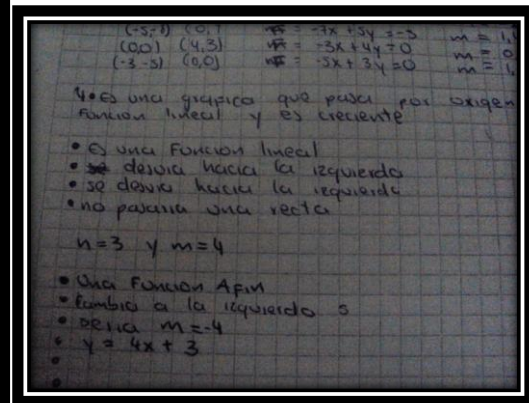 (-5,-1) (0, = -7x + 5y = -5 m = 1,
(0,0) (4,3) = -3x + 4y = 0 m = 0
(-3 -5) (0,0) = -5x + 3y = 0 m = 1,
4. es una grafica que pasa por origen
Funcion lineal y es creciente
• es una Funcion lineal
• se desvia hacia la izquierda
• se desvia hacia la izquierda
• no pasaria una recta
n=3 y m=4
• Una Funcion Afin
• Cambia a la izquierdo s
• seria m=-4
• y = 4x + 3